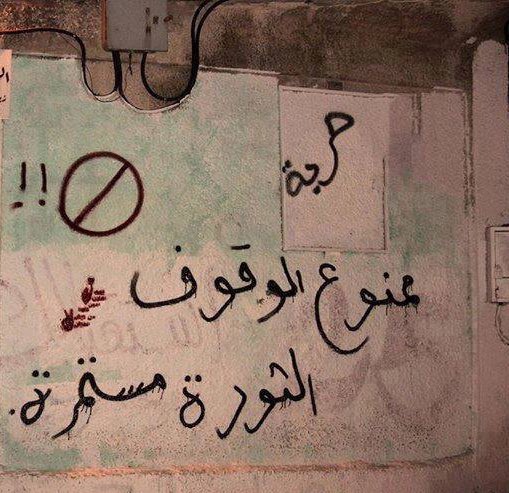 حرية
!!
ممنوع الوقوف
الثورة مستمرة.